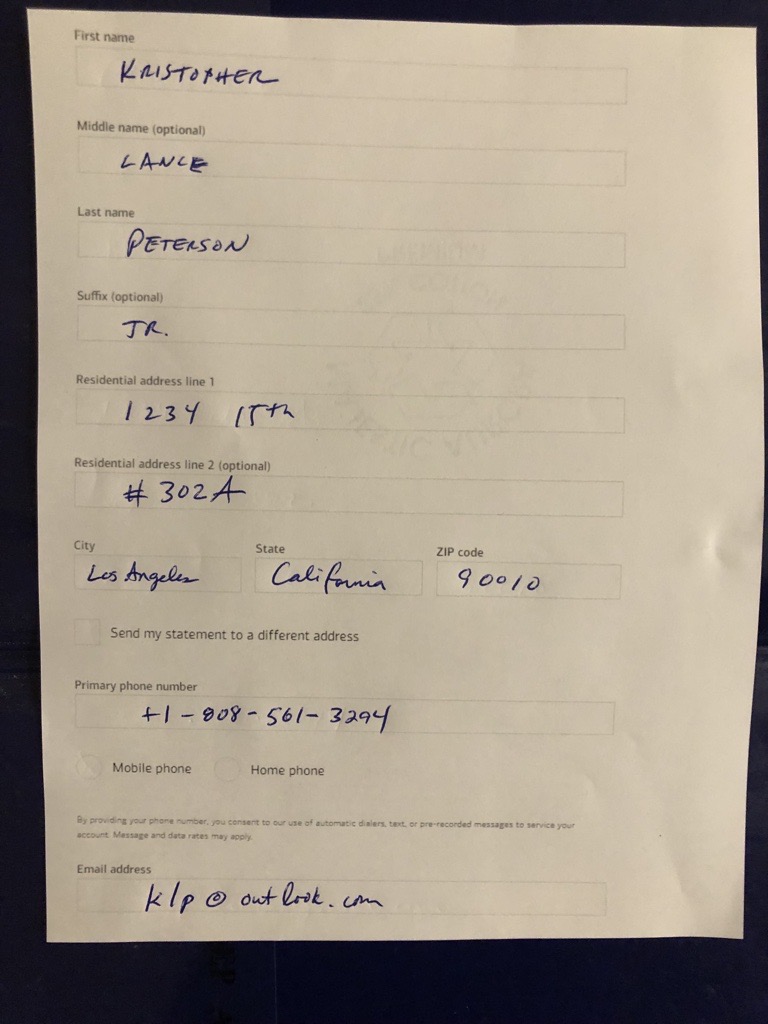 First name
KRISTOPHER
Middle name (optional)
LANCE
Last name
PETERSON
Suffix (optional)
JR.
Residential address line 1
1234 15th
Residential address line 2 (optional)
# 302A
City State ZIP code
Los Angeles California 90010
Send my statement to a different address
Primary phone number
+1-808-561-3294
Mobile phone Home phone
By providing your phone number, you consent to our use of automatic dialers, text, or pre-recorded messages to service your
account. Message and data rates may apply.
Email address
klp@outlook.com